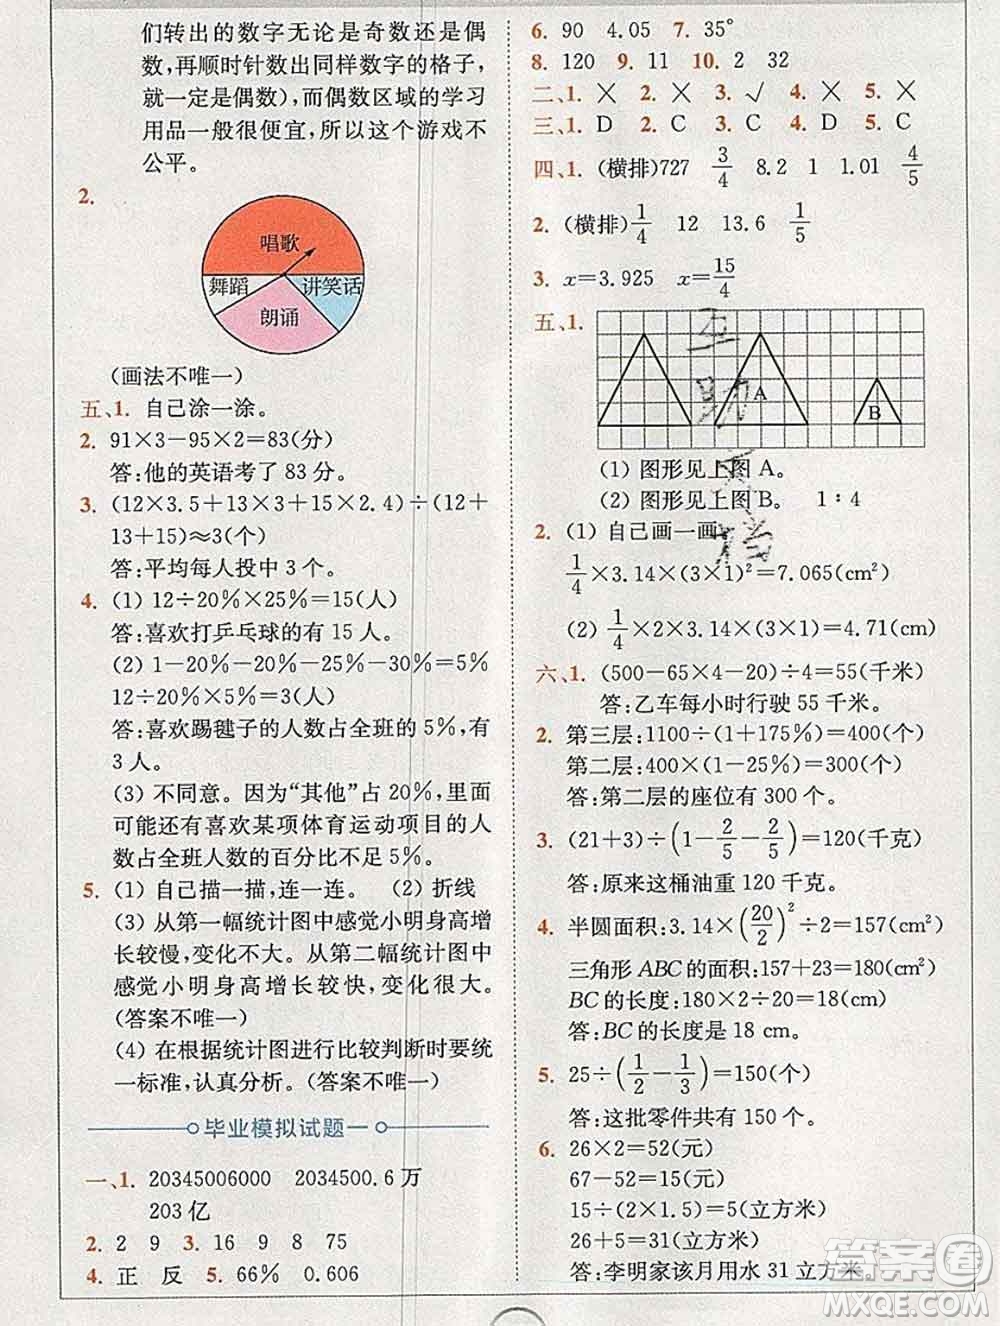 们转出的数字无论是奇数还是偶
数,再顺时针数出同样数字的格子,
就一定是偶数),而偶数区域的学习
用品一般很便宜,所以这个游戏不
公平。
2.
唱歌
舞蹈 讲笑话
朗诵
(画法不唯一)
五、1. 自己涂一涂。
2. 91×3-95×2=83(分)
答:他的英语考了 83 分。
3. (12×3.5+13×3+15×2.4)÷(12+
13+15)≈3(个)
答:平均每人投中 3 个。
4. (1) 12÷20%×25%=15(人)
答:喜欢打乒乓球的有 15 人。
(2) 1-20%-20%-25%-30%=5%
12÷20%×5%=3(人)
答:喜欢踢毽子的人数占全班的 5%,有
3 人。
(3) 不同意。因为“其他”占 20%,里面
可能还有喜欢某项体育运动项目的人
数占全班人数的百分比不足 5%。
5. (1) 自己描一描,连一连。 (2) 折线
(3) 从第一幅统计图中感觉小明身高增
长较慢,变化不大。从第二幅统计图中
感觉小明身高增长较快,变化很大。
(答案不唯一)
(4) 在根据统计图进行比较判断时要统
一标准,认真分析。(答案不唯一)
毕业模拟试题一
一、1. 20345006000 2034500.6 万
203 亿
2. 2 9 3. 16 9 8 75
4. 正 反 5. 66% 0.606
6. 90 4.05 7. 35°
8. 120 9. 11 10. 2 32
二、1. × 2. × 3. √ 4. × 5. ×
三、1. D 2. C 3. C 4. D 5. C
四、1. (横排)727 3/4 8.2 1 1.01 4/5
2. (横排)1/4 12 13.6 1/5
3. x=3.925 x=15/4
五、1.
A B
(1) 图形见上图 A。
(2) 图形见上图 B。 1∶4
2. (1) 自己画一画
1/4×3.14×(3×1)²=7.065(cm²)
(2) 1/4×2×3.14×(3×1)=4.71(cm)
六、1. (500-65×4-20)÷4=55(千米)
答:乙车每小时行驶 55 千米。
2. 第三层:1100÷(1+175%)=400(个)
第二层:400×(1-25%)=300(个)
答:第二层的座位有 300 个。
3. (21+3)÷(1-2/5-2/5)=120(千克)
答:原来这桶油重 120 千克。
4. 半圆面积:3.14×(20/2)²÷2=157(cm²)
三角形 ABC 的面积:157+23=180(cm²)
BC 的长度:180×2÷20=18(cm)
答:BC 的长度是 18 cm。
5. 25÷(1/2-1/3)=150(个)
答:这批零件共有 150 个。
6. 26×2=52(元)
67-52=15(元)
15÷(2×1.5)=5(立方米)
26+5=31(立方米)
答:李明家该月用水 31 立方米。
答案圈
MXQE.COM